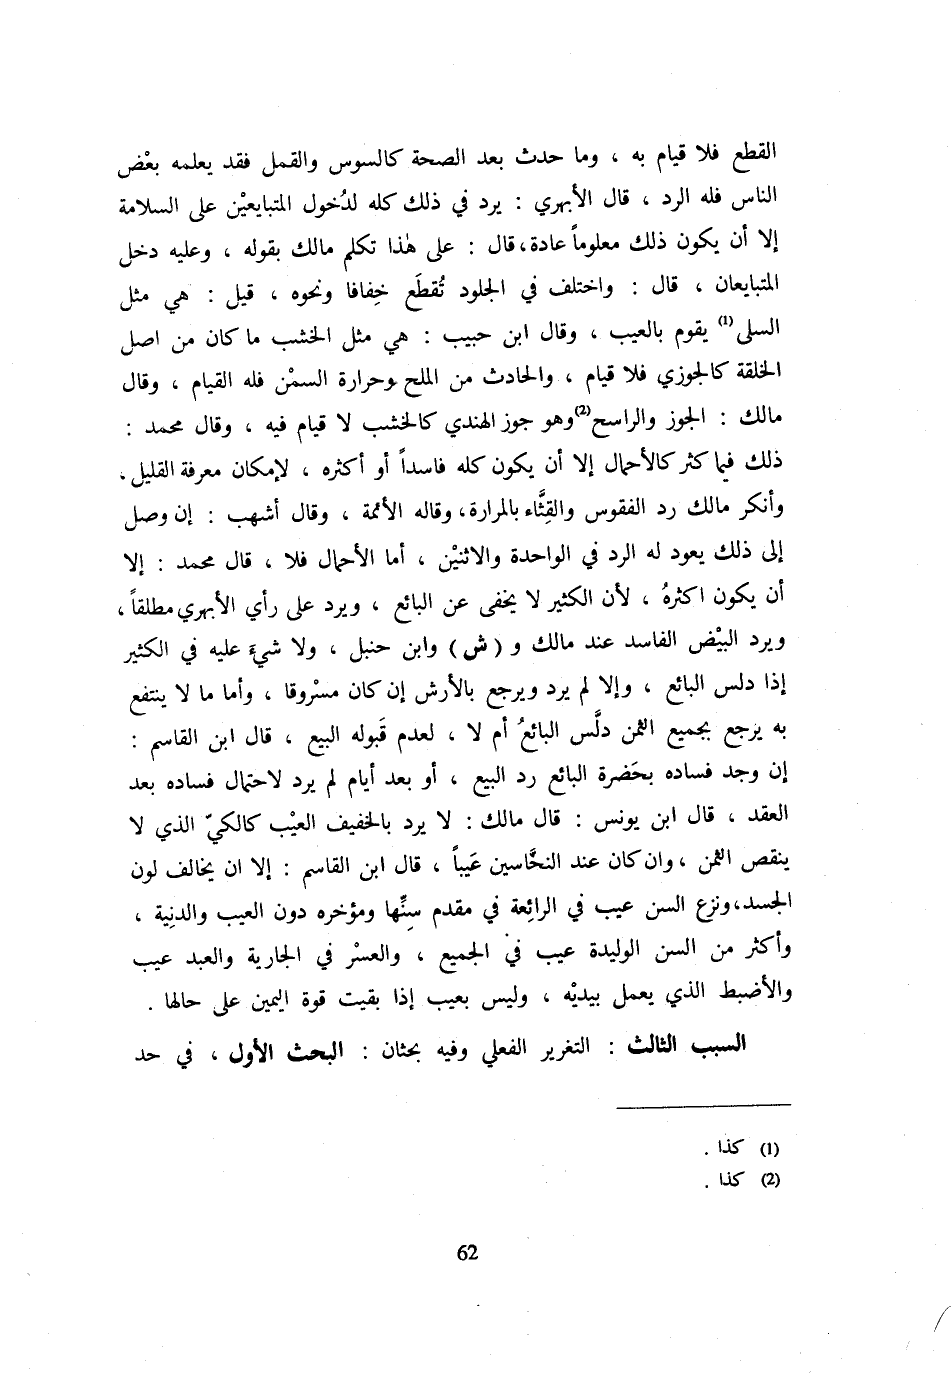 القطع فلا قيام به ، وما حدث بعد الصحة كالسوس والقمل فقد يعلمه بعْض
الناس فله الرد ، قال الأبهري : يرد في ذلك كله لدُخول المتبايعيْن على السلامة
إلا أن يكون ذلك معلوماً عادة،قال : على هٰذا تكلم مالك بقوله ، وعليه دخل
المتبايعان ، قال : واختلف في الجلود تُقطَع خِفافا ونحوه ، قيل : هي مثل
السلى(1) يقوم بالعيب ، وقال ابن حبيب : هي مثل الخشب ما كان من اصل
الخلقة كالجوزي فلا قيام ، والحادث من الملح وحرارة السمْن فله القيام ، وقال
مالك : الجوز والراسح(2)وهو جوز الهندي كالخشب لا قيام فيه ، وقال محمد :
ذلك فيما كثر كالأحمال إلا أن يكون كله فاسداً أو أكثره ، لإمكان معرفة القليل .
وأنكر مالك رد الفقوس والقِثَّاء بالمرارة، وقاله الأئمة ، وقال أشهب : إن وصل
إلى ذلك يعود له الرد في الواحدة والاثنيْن ، أما الأحمال فلا ، قال محمد : إلا
أن يكون اكثرهُ ، لأن الكثير لا يخفى عن البائع ، ويرد على رأي الأبهري مطلقاً ،
ويرد البيْض الفاسد عند مالك و ( ش ) وابن حنبل ، ولا شيءَ عليه في الكثير
إذا دلس البائع ، وإلا لم يرد ويرجع بالأرش إن كان مسْروقا ، وأما ما لا ينتفع
به يرجع بجميع الثمن دلَّس البائعُ أم لا ، لعدم قَبوله البيع ، قال ابن القاسم :
إن وجد فساده بحَضرة البائع رد البيع ، أو بعد أيام لم يرد لاحتمال فساده بعد
العقد ، قال ابن يونس : قال مالك : لا يرد بالخفيف العيْب كالكيّ الذي لا
ينقص الثمن ، وان كان عند النخَّاسين عَيباً ، قال ابن القاسم : إلا ان يخالف لون
الجسد،ونزع السن عيب في الرائعة في مقدم سنِّها ومؤخره دون العيب والدنِية ،
وأكثر من السن الوليدة عيب في الجميع ، والعسْر في الجارية والعبد عيب
والأضبط الذي يعمل بيديْه ، وليس بعيب إذا بقيت قوة اليمين على حالها .
السبب الثالث : التغرير الفعلي وفيه بحثان : البحث الأول ، في حد
(1) كذا .
(2) كذا .
62